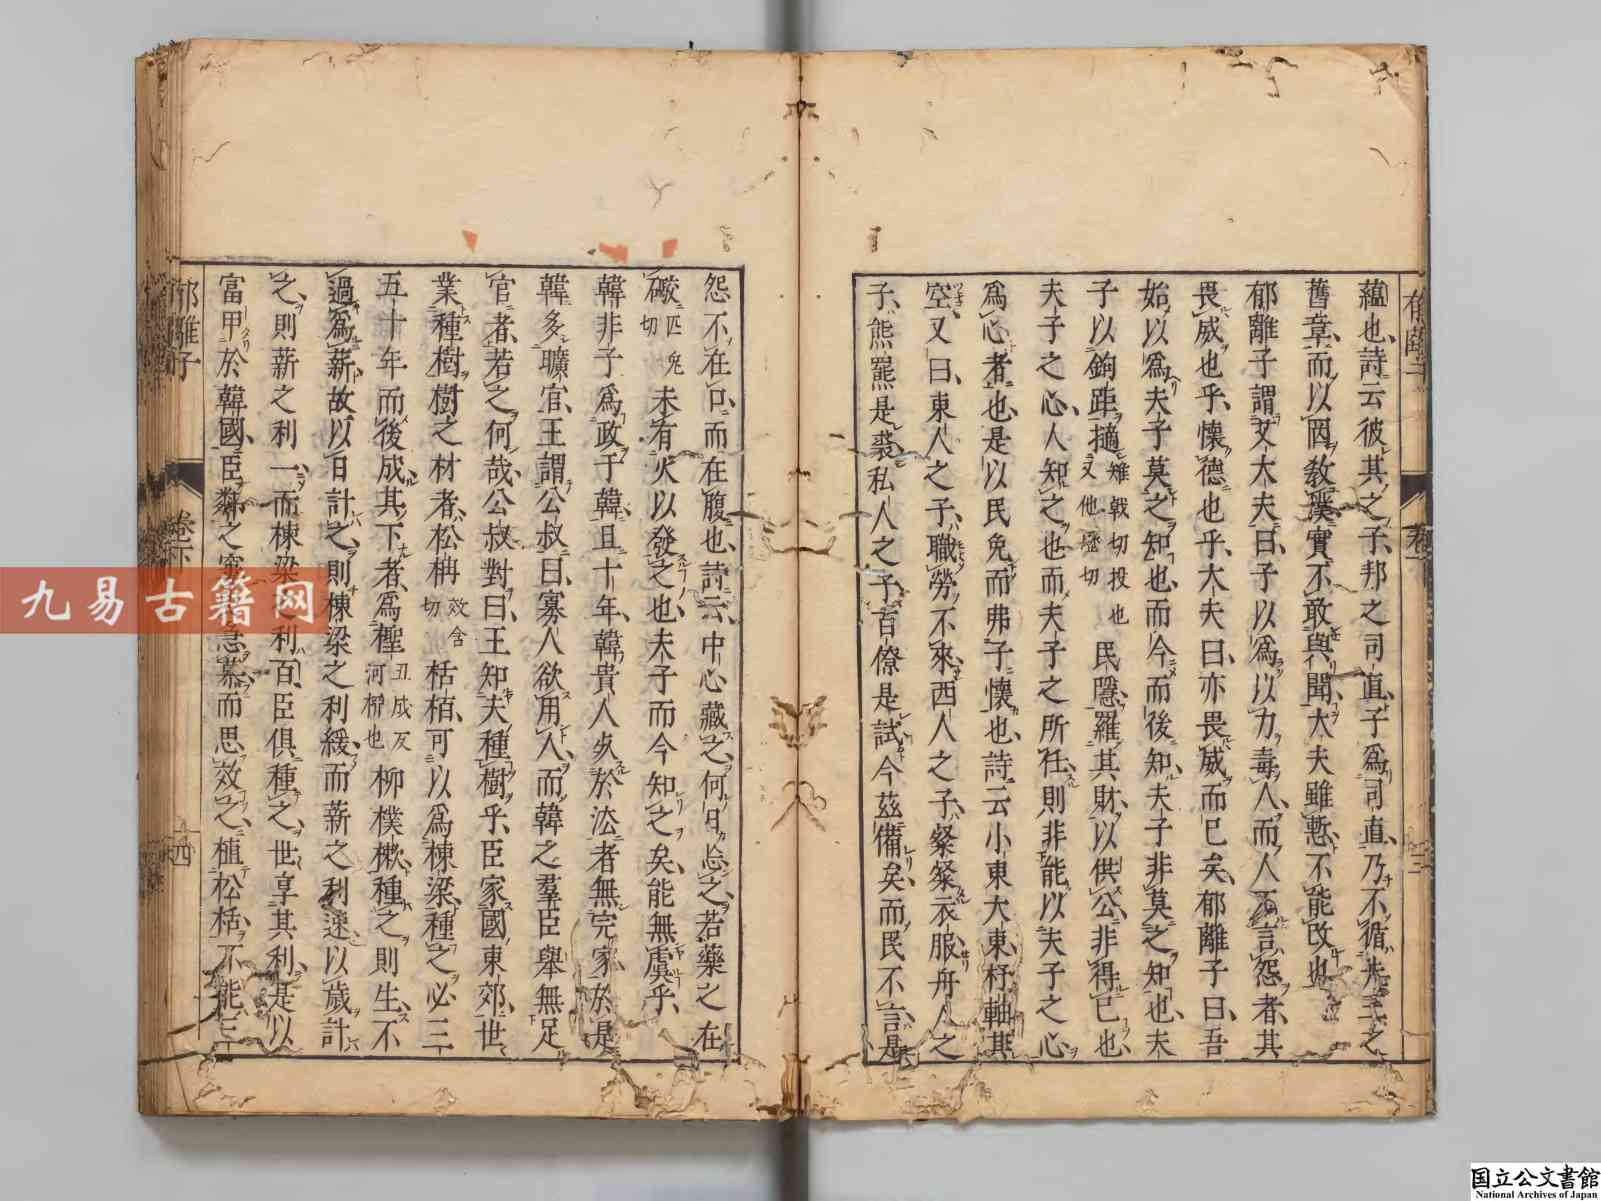 蘊也詩云彼其之子邦之司直子爲司直乃不循先王之
舊章而以因敎溪實不敢與聞大夫雖慙不能改也
郁離子謂艾大夫曰子以爲以力毒人而人不言怨者其
畏威也乎懷德也乎大夫曰亦畏威而已矣郁離子曰吾
始以爲夫子莫之知也而今而後知夫子非莫之知也夫
子以鉤距擿雉戟切投也又他歷切民隱羅其財以供公非得已也
夫子之心人知之也而夫子之所任則非能以夫子之心
爲心者也是以民免而弗子懷也詩云小東大東杼軸其
空又曰東人之子職勞不來西人之子粲粲衣服舟人之
子熊羆是裘私人之子百僚是試今茲備矣而民不言是
怨不在口而在腹也詩云中心藏之何日忘之若藥之在
礮匹皃切未有火以發之也夫子而今知之矣能無虞乎
韓非子爲政于韓且十年韓貴人死於法者無完家於是
韓多曠官王謂公叔曰寡人欲用人而韓之羣臣舉無足
官者若之何哉公叔對曰王知夫種樹乎臣家國東郊世
業種樹樹之材者松柟栝栢可以爲棟梁種之必三
五十年而後成其下者爲檉丑成反河柳也柳樸樕種之則生不
過爲薪故以日計之則棟梁之利緩而薪之利速以歲計
之則薪之利一而棟梁之利百臣俱種之世享其利是以
富甲於韓國臣鄰之窶急慕而思效之植松栝不能三
郁離子 卷下 四
九易古籍网
国立公文書館
National Archives of Japan